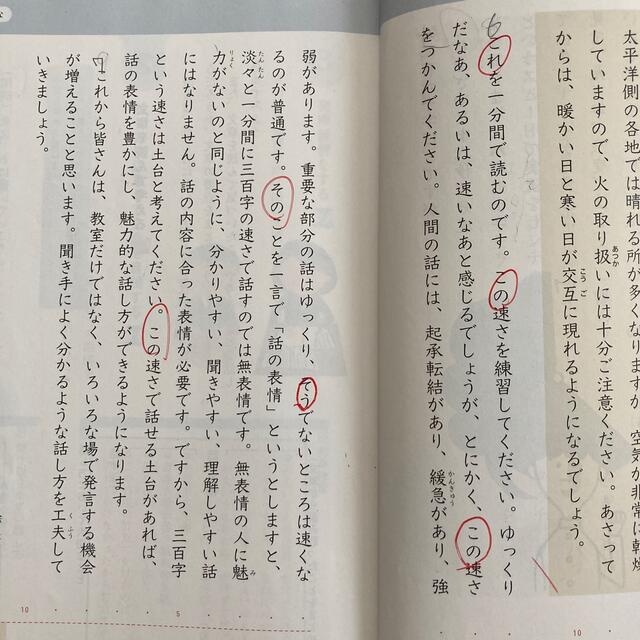 太平洋側の各地では晴れる所が多くなりますが、空気が非常に乾燥
していますので、火の取り扱いには十分ご注意ください。あさって
からは、暖かい日と寒い日が交互に現れるようになるでしょう。
これを一分間で読むのです。この速さを練習してください。ゆっくり
だなあ、あるいは、速いなあと感じるでしょうが、とにかく、この速さ
をつかんでください。人間の話には、起承転結があり、緩急があり、強
弱があります。重要な部分の話はゆっくり、そうでないところは速くな
るのが普通です。そのことを一言で「話の表情」というとしますと、
淡々と一分間に三百字の速さで話すのでは無表情です。無表情の人に魅
力がないのと同じように、分かりやすい、聞きやすい、理解しやすい話
にはなりません。話の内容に合った表情が必要です。ですから、三百字
という速さは土台と考えてください。この速さで話せる土台があれば、
話の表情を豊かにし、魅力的な話し方ができるようになります。
これから皆さんは、教室だけではなく、いろいろな場で発言する機会
が増えることと思います。聞き手によく分かるような話し方を工夫して
いきましょう。
10
5
10